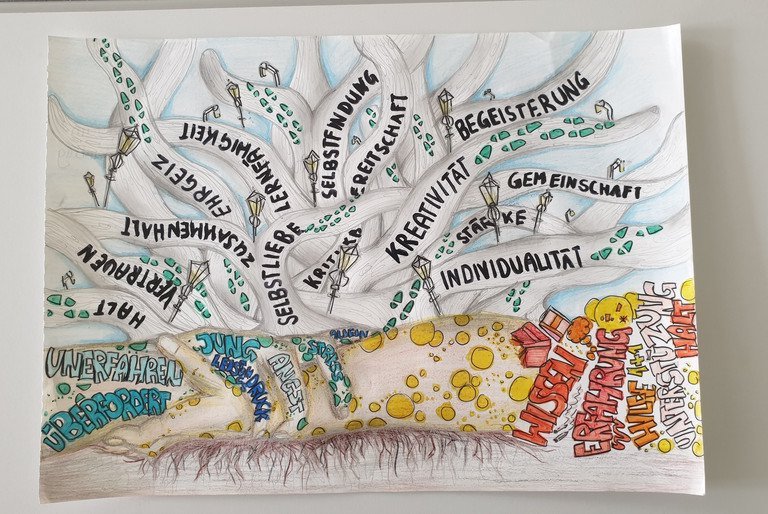 BEGEISTERUNG
SELBSTFINDUNG
LERNFÄHIGKEIT
EHRGEIZ
KREATIVITÄT
GEMEINSCHAFT
STÄRKE
ZUSAMMENHALT
SELBSTLIEBE
VERTRAUEN
INDIVIDUALITÄT
HALT
UNERFAHREN
ÜBERFORDERT
JUNG
ANGST
WISSEN
ERFAHRUNG
HILFE 1+1
UNTERSTÜTZUNG
HALT